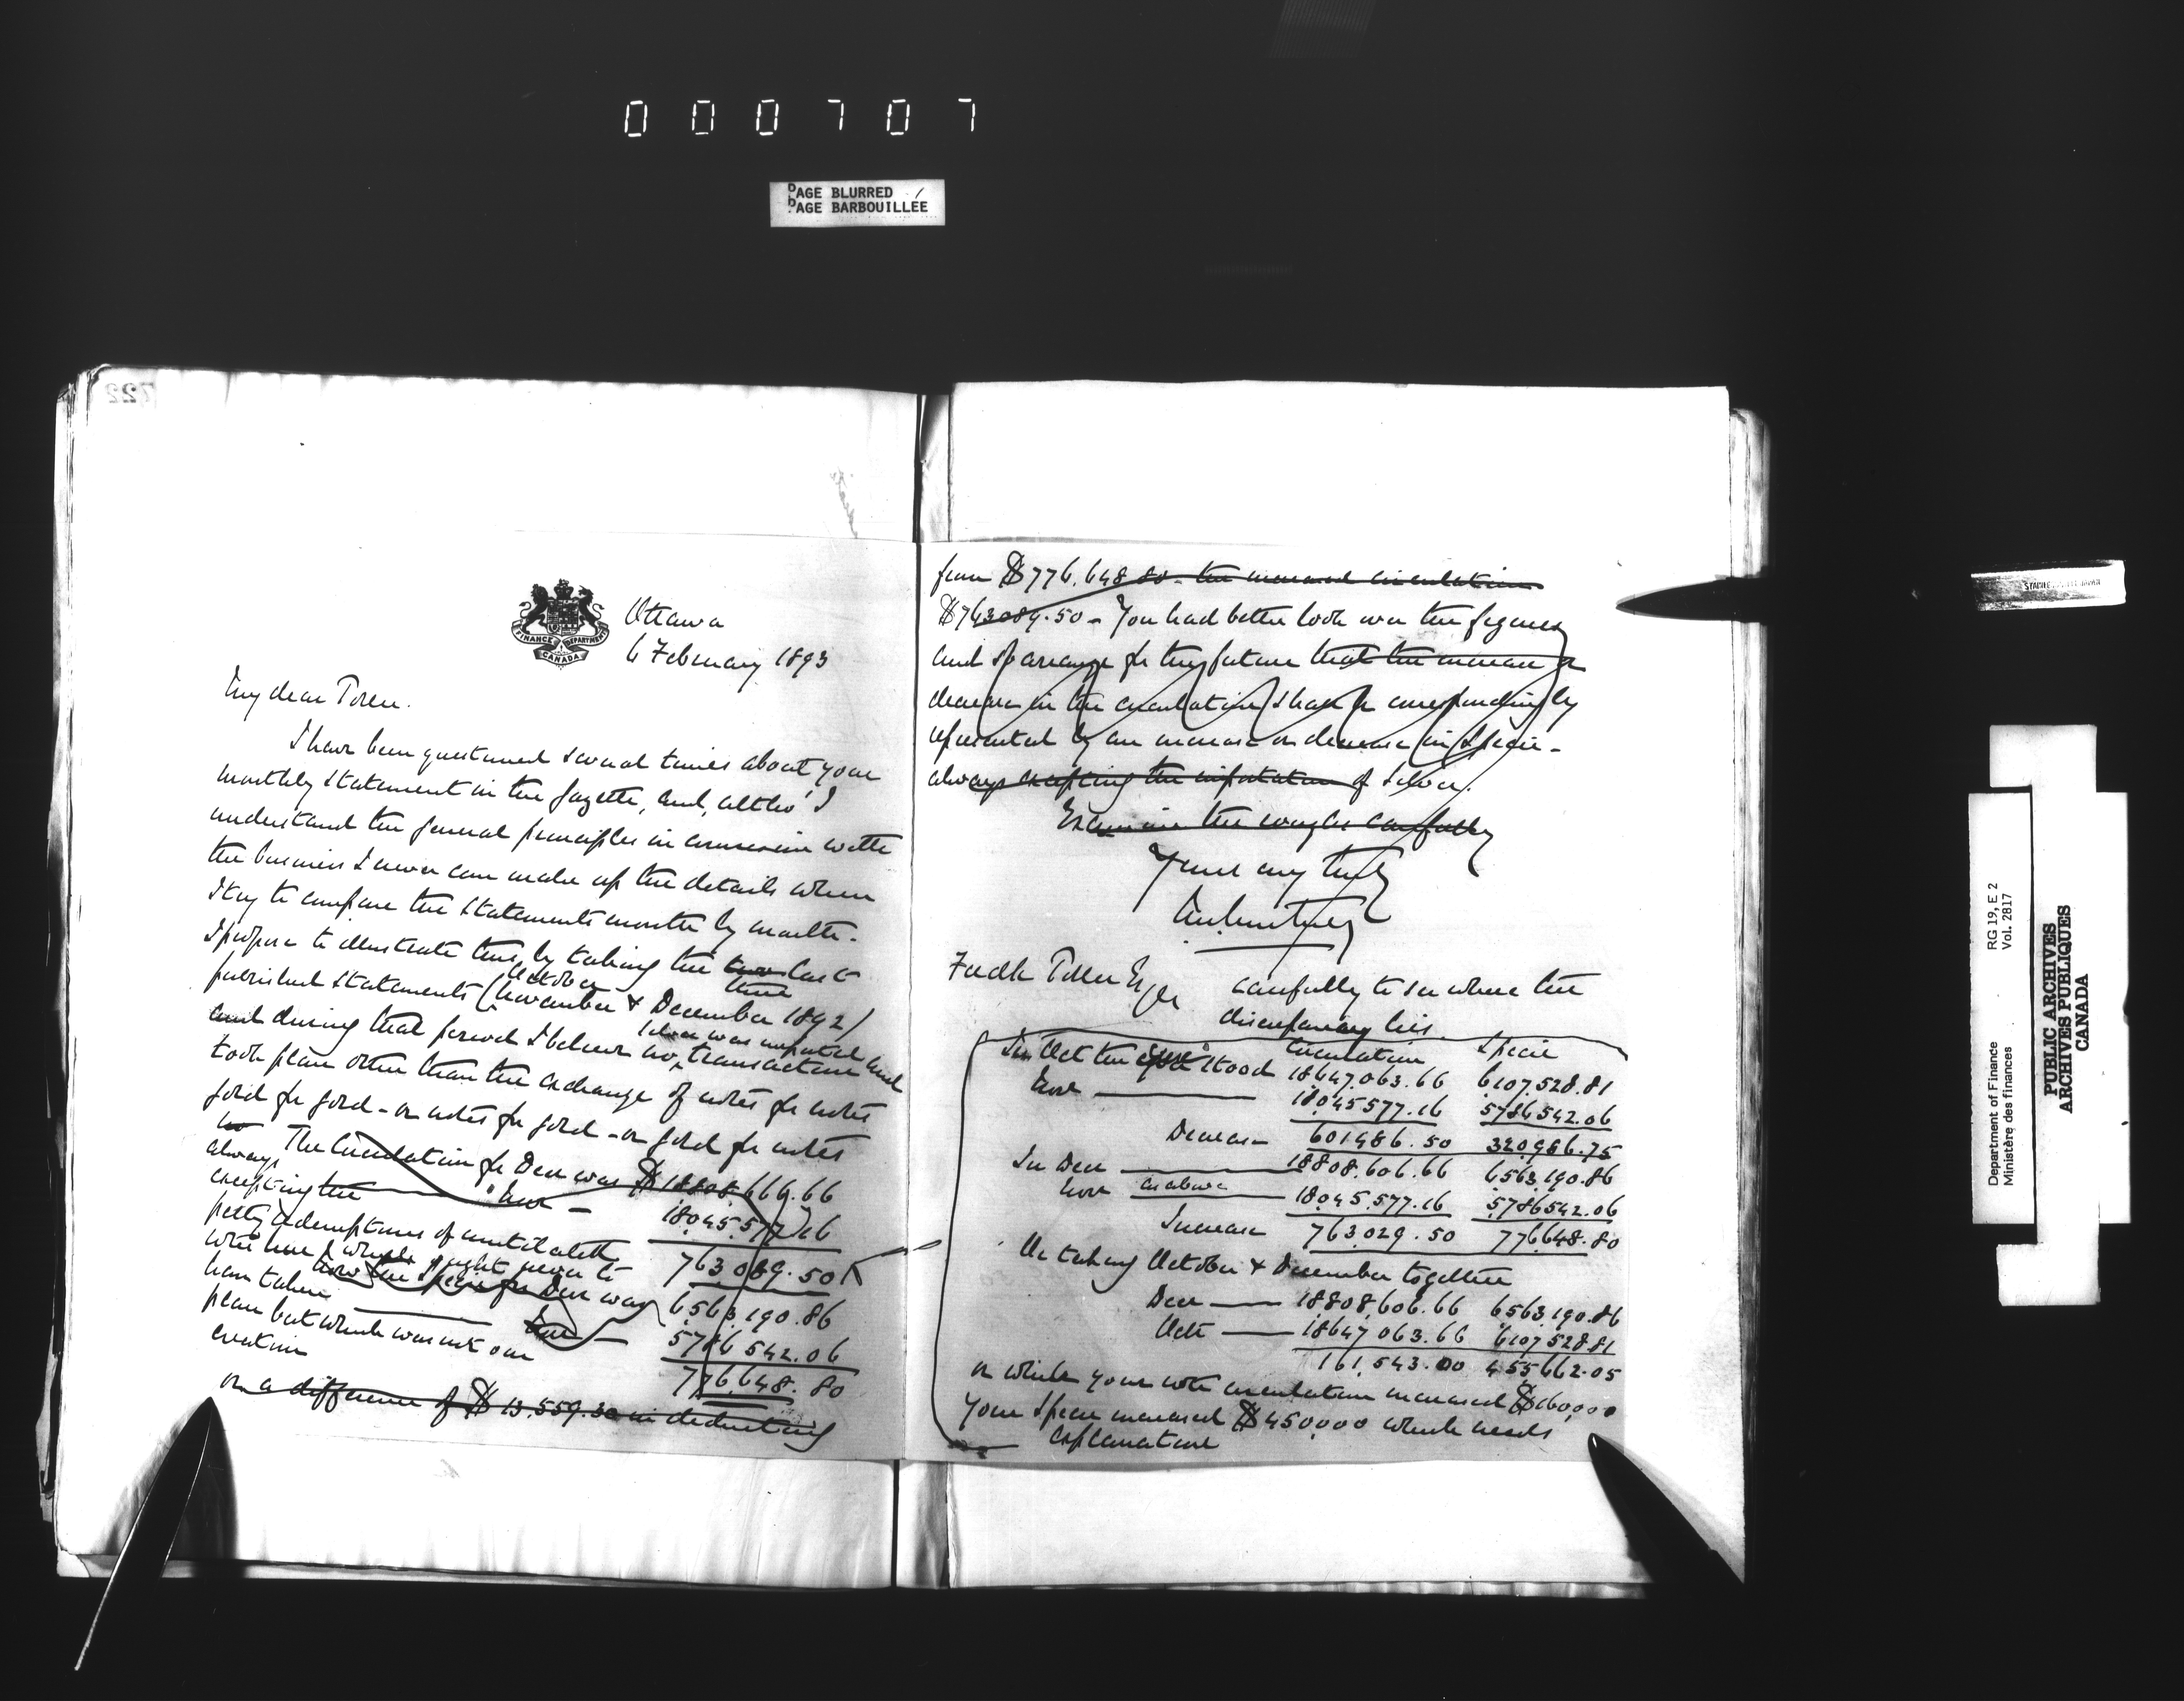 000707
PAGE BLURRED
PAGE BARBOUILLÉE
722
FINANCE DEPARTMENT
CANADA
Ottawa
6 February 1893
My dear Toller.
I have been questioned several times about your
monthly statement in the Gazette, and, altho' I
understand the general principles in connexion with
the business I never can make up the details when
I try to compare the statements month by month.
I propose to illustrate this, by taking the two last
three
October
published statements (November & December 1892)
and during that period I believe no, transactions
silver was imported and
took place other than the exchange of notes for notes
gold for gold - or notes for gold - or gold for notes
always The Circulation for Decr was $18808,666.66
excepting the " Novr 18,045,577.16
petty redemptions of mutilated 763,089.50
notes which ought never to
have taken Now the Specie for Decr was 6,563,190.86
place but which was not our Novr 5786 542.06
creation 776,648.80
or a difference of $13,559.30 in deducting
from $776,648.80 - the increased circulation
$763089.50 - You had better look over the figures
and so arrange for the future that the increase or
decrease in the circulation shall be correspondingly
represented by an increase or decrease in specie -
always excepting the importation of silver.
Examine the carefully
Yours very truly
Fredk Toller Esqr
carefully to see where the
discrepancy lies
Circulation Specie
In Oct the stood 18,647,063.66 6,107,528.81
Novr 18,045,577.16 5786,542.06
Decrease 601,486.50 320,986.75
In Decr 18,808,606.66 6,563,190.86
Novr as above 18,045,577.16 5,786,542.06
Increase 763,029.50 776,648.80
Or taking October & December together
Decr 18,808,606.66 6,563,190.86
Octr 18,647,063.66 6,107,528.81
161,543.00 455,662.05
or while your note circulation increased $160,000
your specie increased $450,000 which needs
explanation
Department of Finance
Ministère des finances
RG 19, E 2
Vol. 2817
PUBLIC ARCHIVES
ARCHIVES PUBLIQUES
CANADA